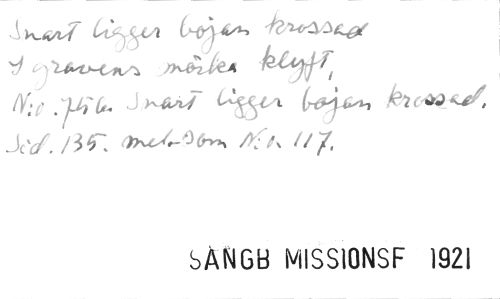 Snart ligger bojan krossad
I gravens mörka klyft,
N:o. 756. Snart ligger bojan krossad.
Sid. 135. mel. som N:o. 117.
SÅNGB MISSIONSF 1921